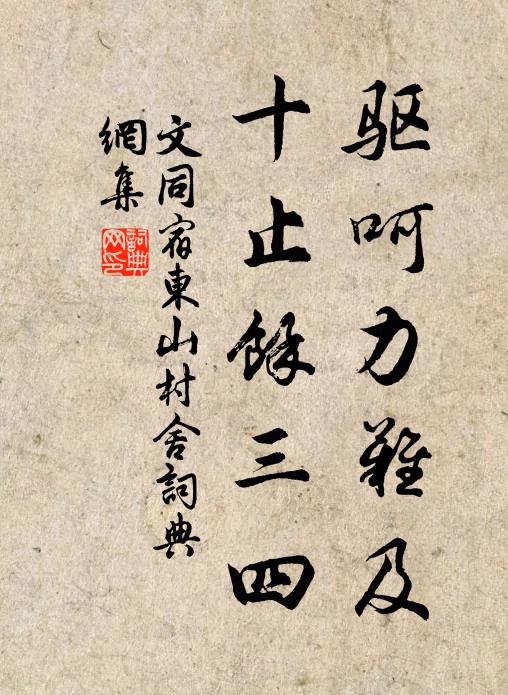 驱呵力難及
十止餘三四
文同宿東山村舍詞典
網集
詞典
网印